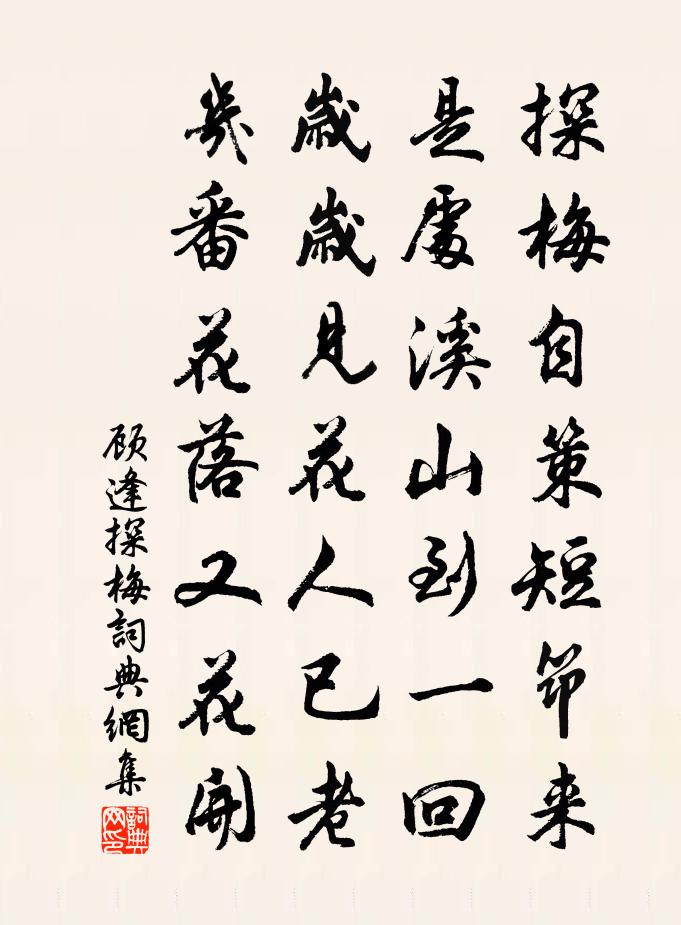 探梅自策短筇来
是處溪山到一回
歲歲見花人已老
幾番花落又花開
顾逢探梅詞典網集
詞典網印